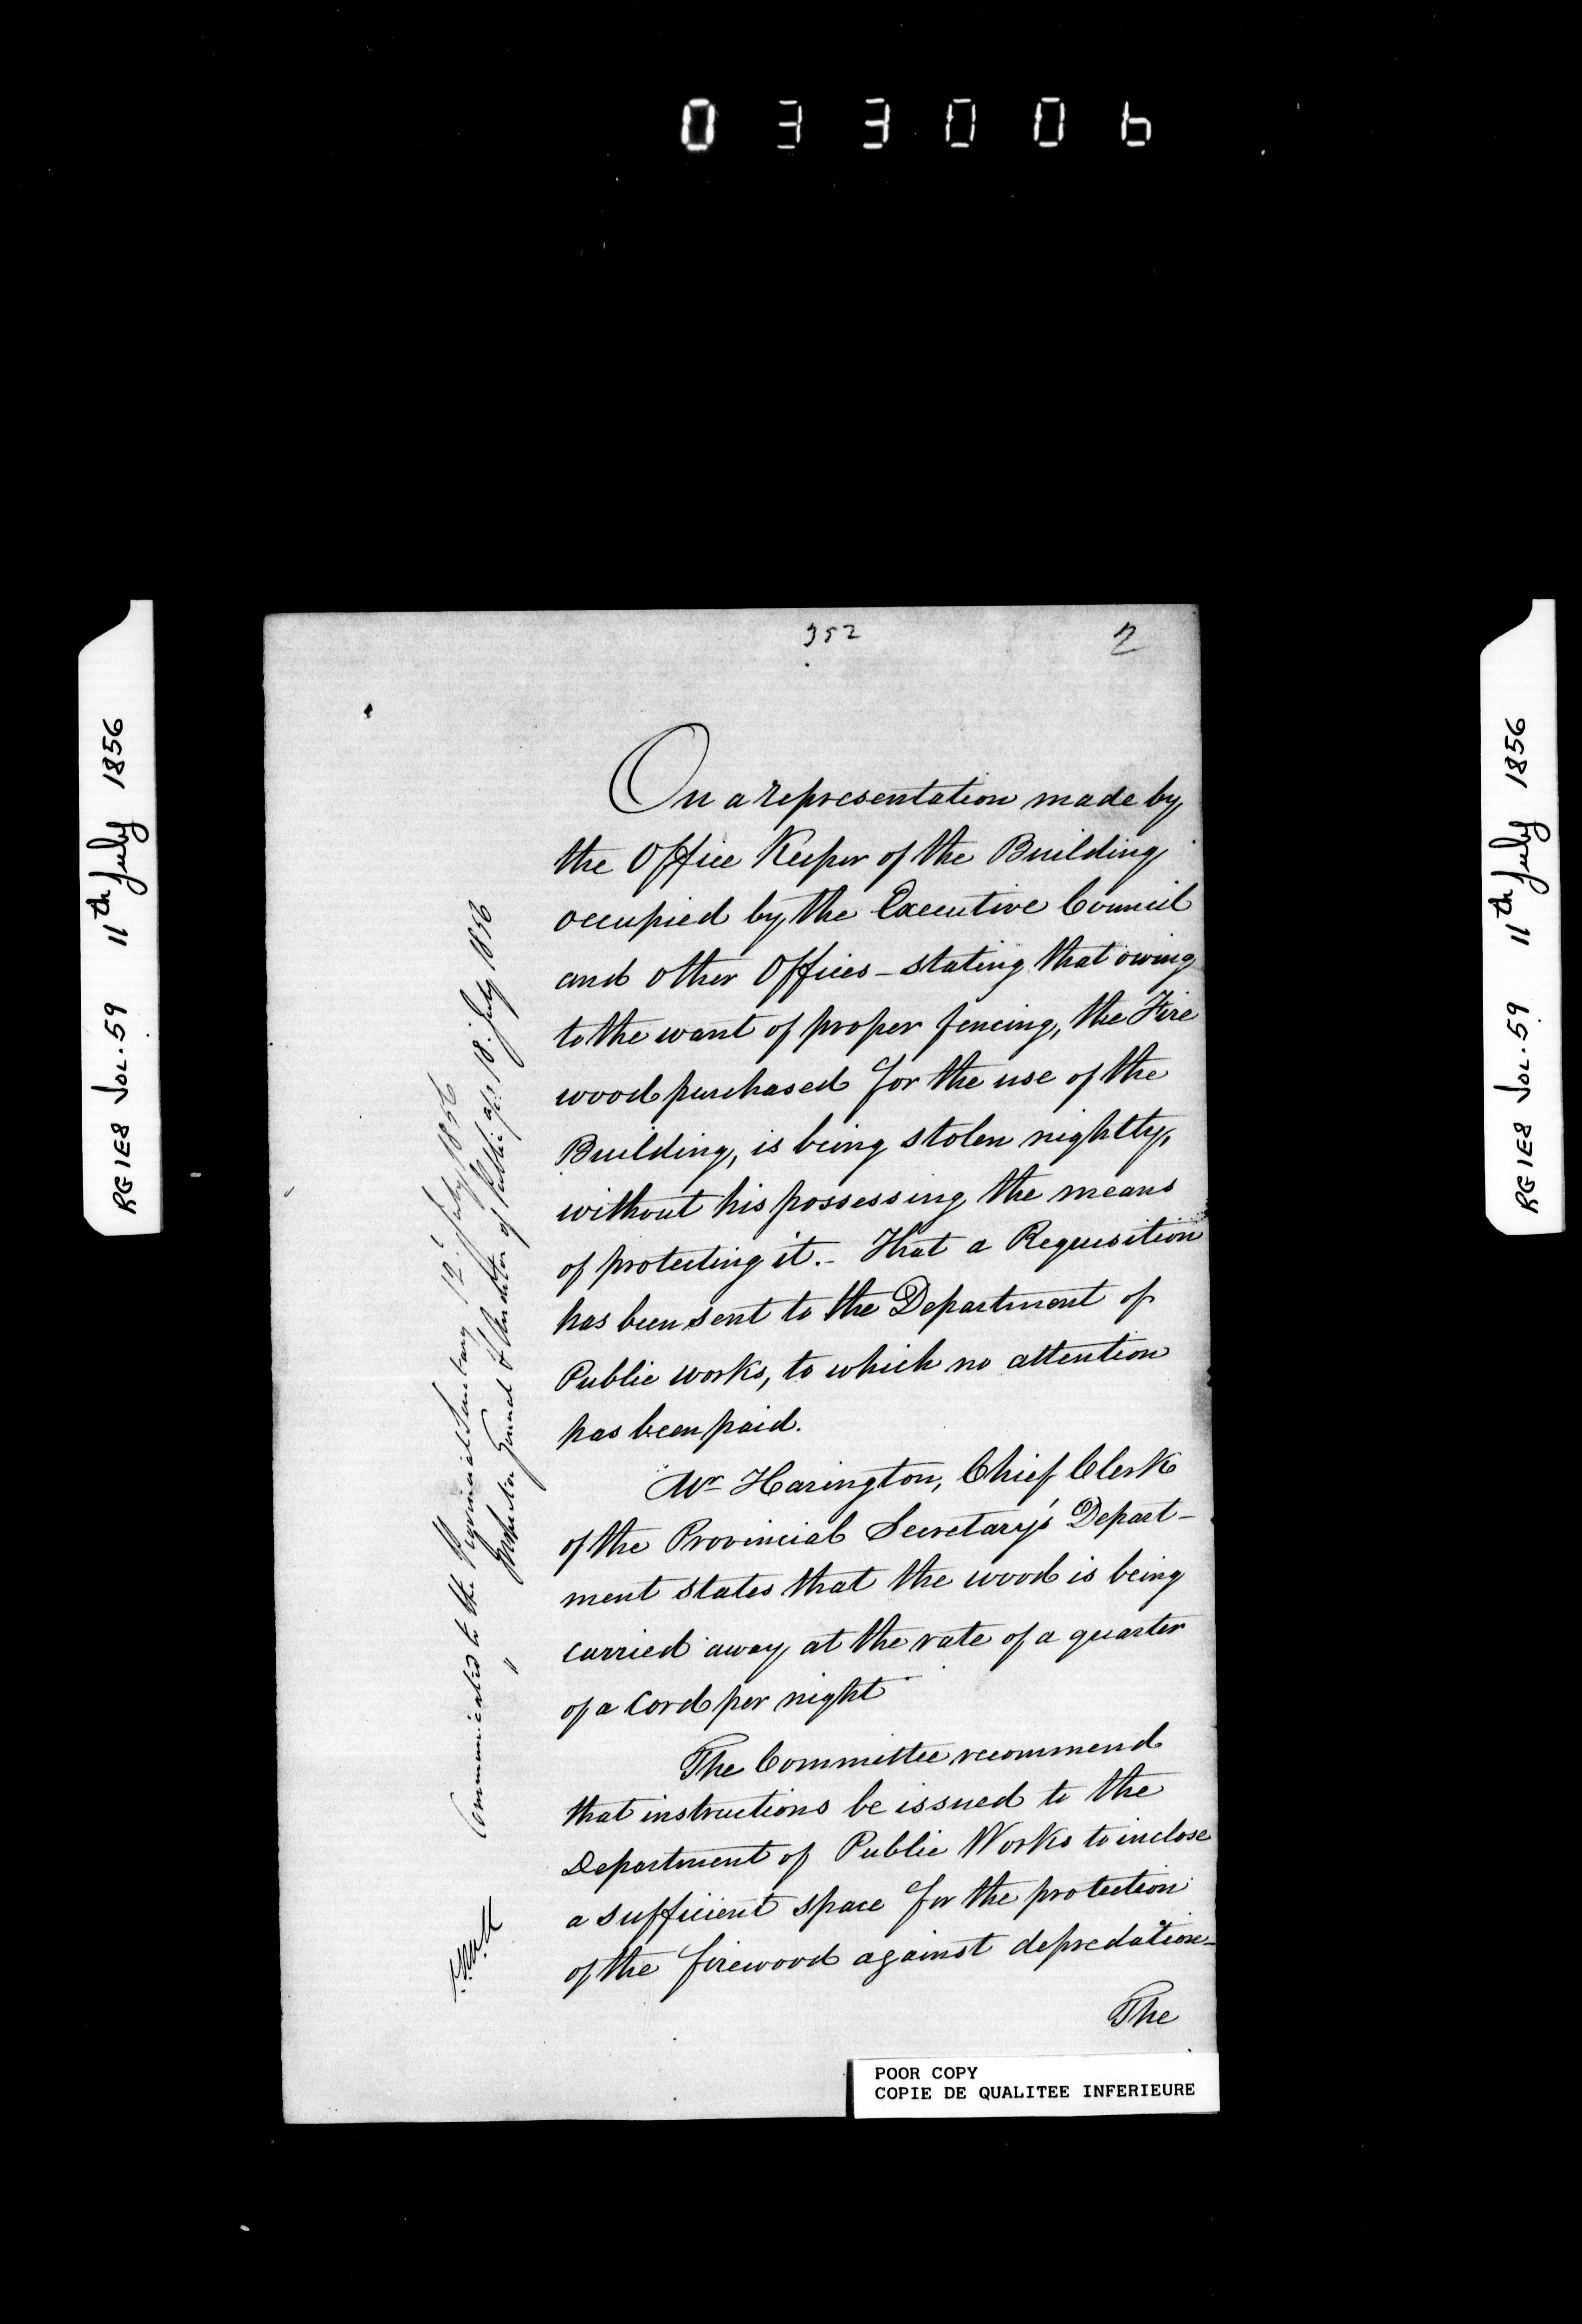 033006
RG1E8 Vol. 59 11th July 1856
352
2
On a representation made by
the Office Keeper of the Building
occupied by the Executive Council
and other Offices – stating that owing
to the want of proper fencing, the Fire
wood purchased for the use of the
Building, is being stolen nightly,
without his possessing the means
of protecting it. – That a Requisition
has been sent to the Department of
Public Works, to which no attention
has been paid.
Mr Harington, Chief Clerk
of the Provincial Secretary's Depart-
ment states that the wood is being
carried away at the rate of a quarter
of a Cord per night
The Committee recommend
that instructions be issued to the
Department of Public Works to inclose
a sufficient space for the protection
of the firewood against depredation –
The
Communicated to the Provincial Secretary 12. July 1856
" General & Auditor of Public a/cs 18. July 1856
POOR COPY
COPIE DE QUALITEE INFERIEURE
RG1E8 Vol. 59 11th July 1856